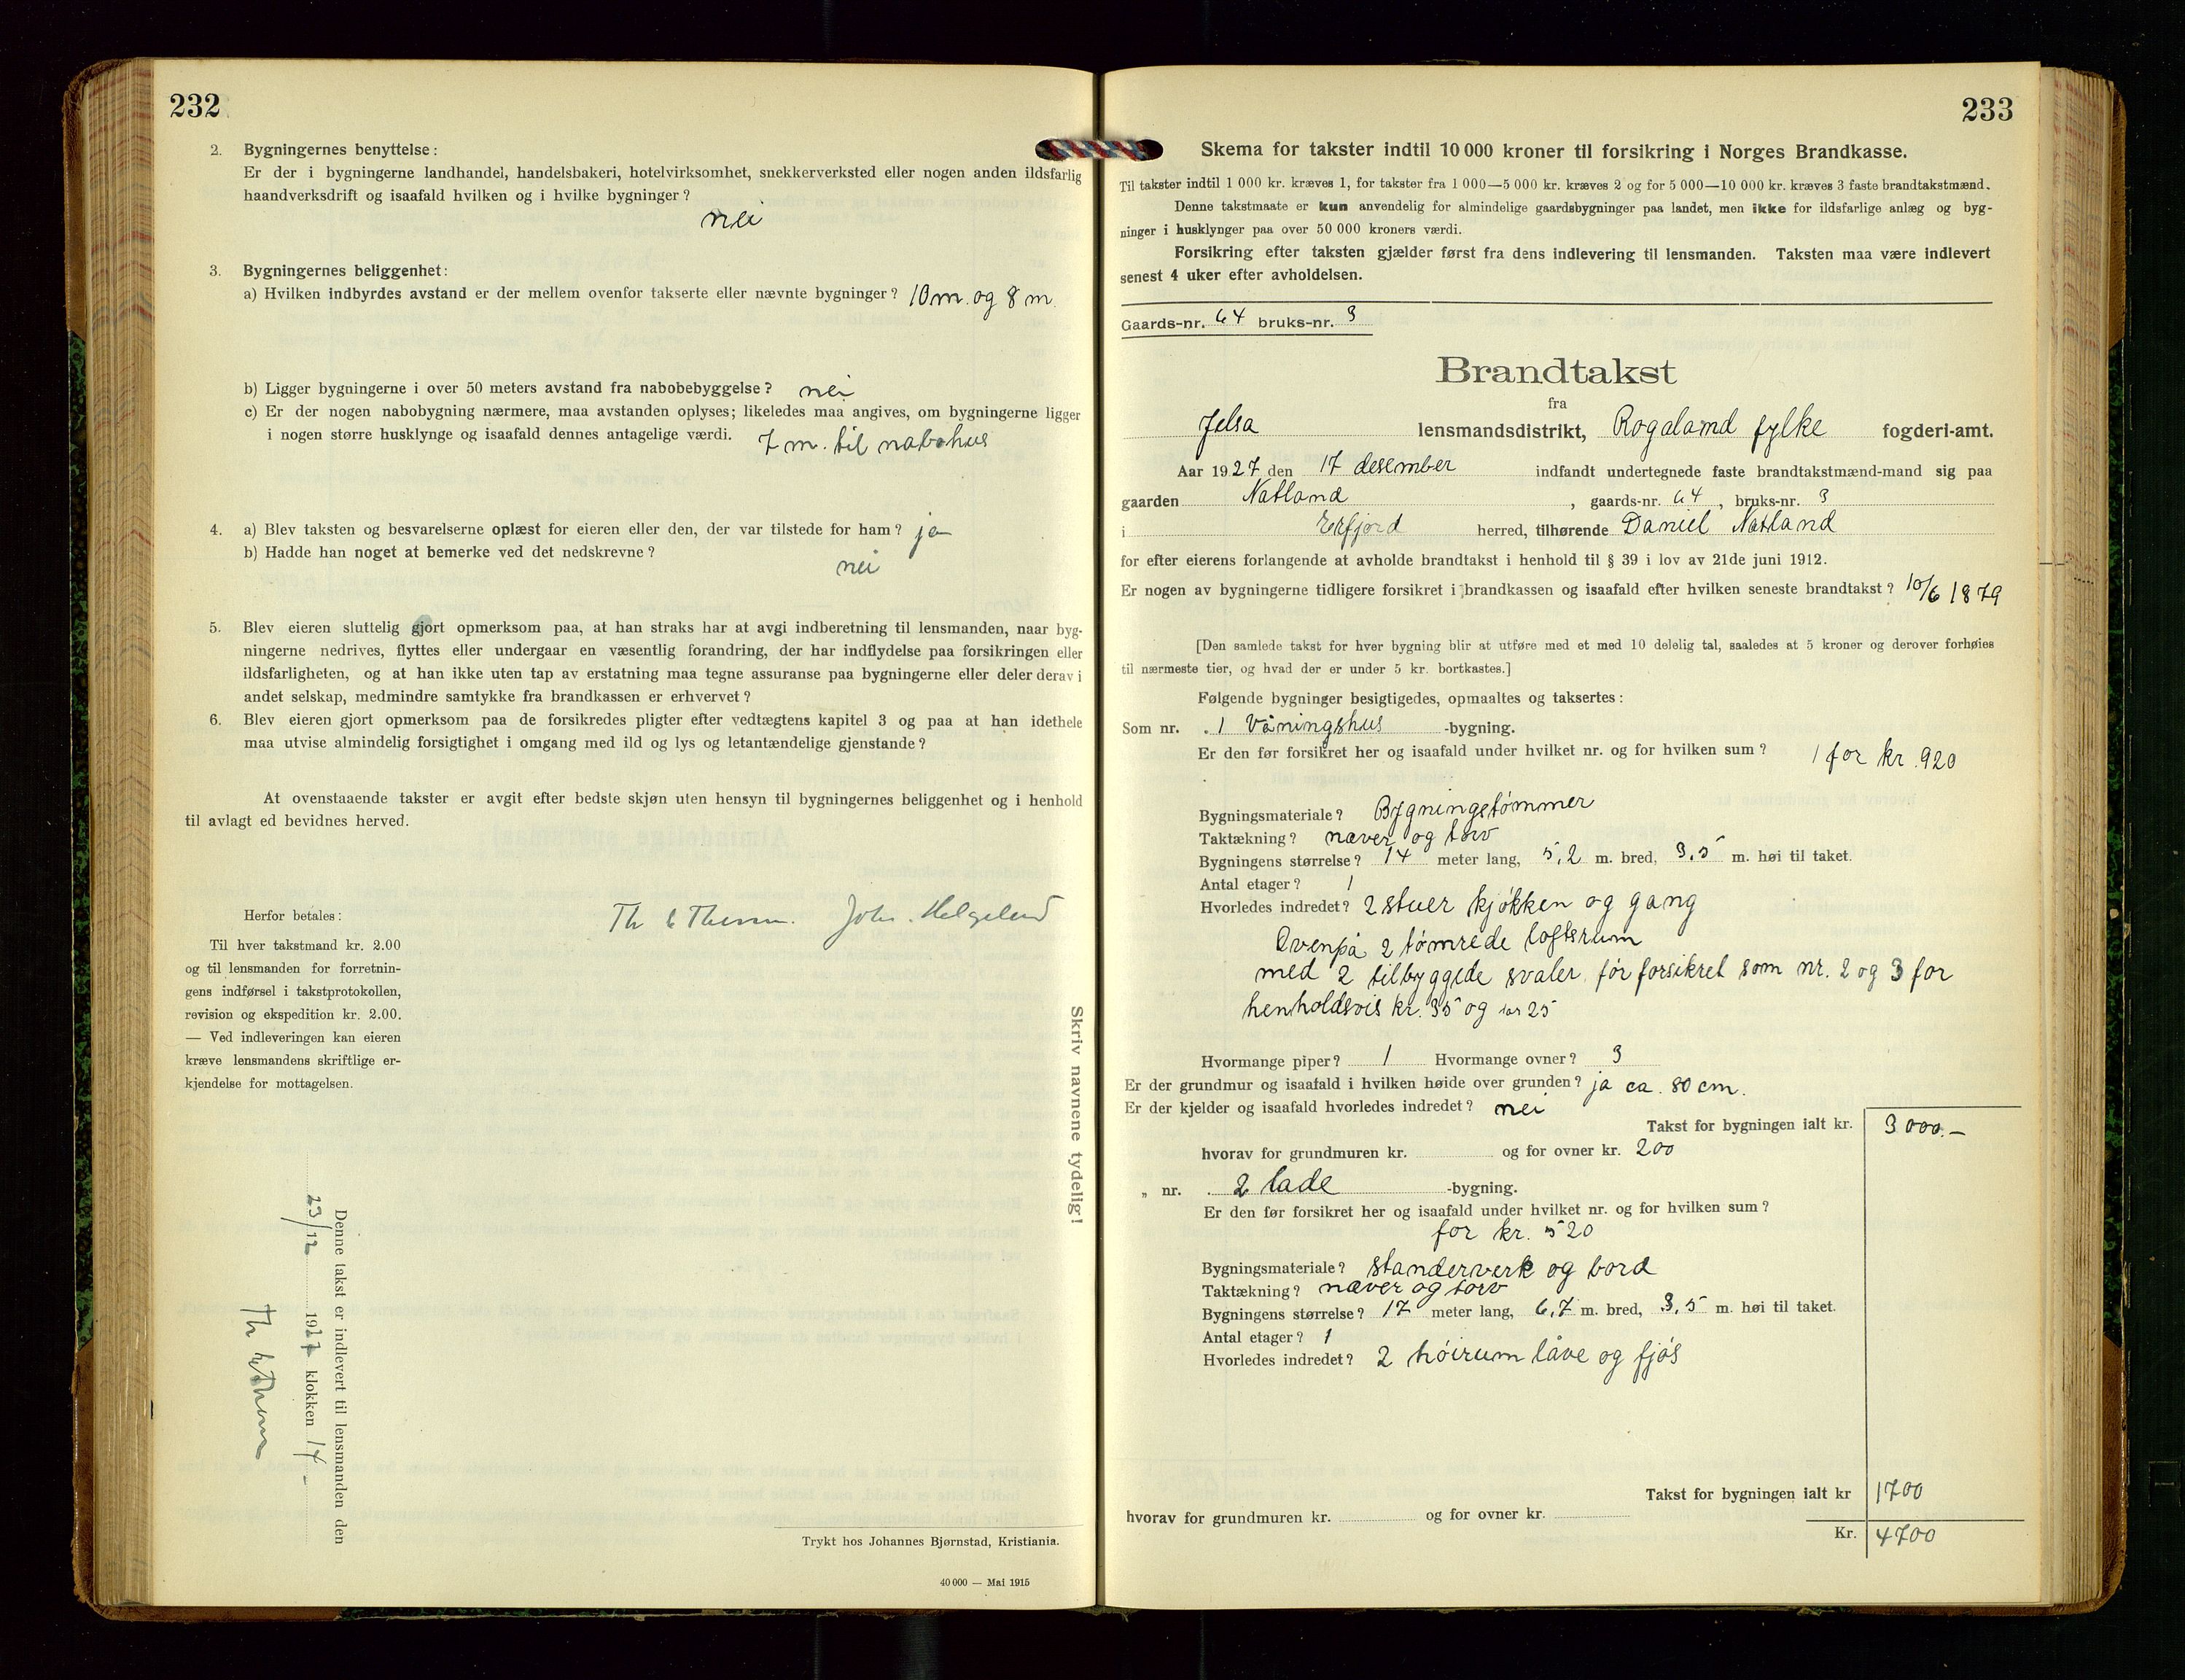 232
2. Bygningernes benyttelse:
Er der i bygningerne landhandel, handelsbakeri, hotelvirksomhet, snekkerverksted eller nogen anden ildsfarlig
haandverksdrift og isaafald hvilken og i hvilke bygninger?
nei
3. Bygningernes beliggenhet:
a) Hvilken indbyrdes avstand er der mellem ovenfor takserte eller nævnte bygninger? 10 m. og 8 m.
b) Ligger bygningerne i over 50 meters avstand fra nabobebyggelse? nei
c) Er der nogen nabobygning nærmere, maa avstanden oplyses; likeledes maa angives, om bygningerne ligger
i nogen større husklynge og isaafald dennes antagelige værdi. 7 m. til nabohus
4. a) Blev taksten og besvarelserne oplæst for eieren eller den, der var tilstede for ham? ja
b) Hadde han noget at bemerke ved det nedskrevne?
nei
5. Blev eieren sluttelig gjort opmerksom paa, at han straks har at avgi indberetning til lensmanden, naar byg-
ningerne nedrives, flyttes eller undergaar en væsentlig forandring, der har indflydelse paa forsikringen eller
ildsfarligheten, og at han ikke uten tap av erstatning maa tegne assuranse paa bygningerne eller deler derav i
andet selskap, medmindre samtykke fra brandkassen er erhvervet?
6. Blev eieren gjort opmerksom paa de forsikredes pligter efter vedtægtens kapitel 3 og paa at han idethele
maa utvise almindelig forsigtighet i omgang med ild og lys og letantændelige gjenstande?
At ovenstaaende takster er avgit efter bedste skjøn uten hensyn til bygningernes beliggenhet og i henhold
til avlagt ed bevidnes herved.
Th John. Helgeland
Herfor betales:
Til hver takstmand kr. 2.00
og til lensmanden for forretnin-
gens indførsel i takstprotokollen,
revision og ekspedition kr. 2.00.
— Ved indleveringen kan eieren
kræve lensmandens skriftlige er-
kjendelse for mottagelsen.
Skriv navnene tydelig!
Denne takst er indlevert til lensmanden den
23/12 1927 klokken 14 -
Th
Trykt hos Johannes Bjørnstad, Kristiania.
40 000 — Mai 1915
233
Skema for takster indtil 10 000 kroner til forsikring i Norges Brandkasse.
Til takster indtil 1 000 kr. kræves 1, for takster fra 1 000—5 000 kr. kræves 2 og for 5 000—10 000 kr. kræves 3 faste brandtakstmænd.
Denne takstmaate er kun anvendelig for almindelige gaardsbygninger paa landet, men ikke for ildsfarlige anlæg og byg-
ninger i husklynger paa over 50 000 kroners værdi.
Forsikring efter taksten gjælder først fra dens indlevering til lensmanden. Taksten maa være indlevert
senest 4 uker efter avholdelsen.
Gaards-nr. 64 bruks-nr. 3
Brandtakst
fra
Jelsa lensmandsdistrikt, Rogaland fylke fogderi-amt.
Aar 1927 den 17 desember indfandt undertegnede faste brandtakstmænd-mand sig paa
gaarden Natland, gaards-nr. 64, bruks-nr. 3
i Erfjord herred, tilhørende Daniel Natland
for efter eierens forlangende at avholde brandtakst i henhold til § 39 i lov av 21de juni 1912.
Er nogen av bygningerne tidligere forsikret i brandkassen og isaafald efter hvilken seneste brandtakst? 10/6 1879
[Den samlede takst for hver bygning blir at utføre med et med 10 delelig tal, saaledes at 5 kroner og derover forhøies
til nærmeste tier, og hvad der er under 5 kr. bortkastes.]
Følgende bygninger besigtigedes, opmaaltes og taksertes:
Som nr. 1 Våningshus -bygning.
Er den før forsikret her og isaafald under hvilket nr. og for hvilken sum? 1 for kr. 920
Bygningsmateriale? Bygningstømmer
Taktækning? næver og torv
Bygningens størrelse? 14 meter lang, 5,2 m. bred, 3,5 m. høi til taket.
Antal etager? 1
Hvorledes indredet? 2 stuer kjøkken og gang
Ovenpå 2 tømrede loftsrum
med 2 tilbyggede svaler før forsikret som nr. 2 og 3 for
henholdsvis kr. 35 og kr 25
Hvormange piper? 1 Hvormange ovner? 3
Er der grundmur og isaafald i hvilken høide over grunden? ja ca. 80 cm.
Er der kjelder og isaafald hvorledes indredet? nei
Takst for bygningen ialt kr. 3000.—
hvorav for grundmuren kr. og for ovner kr. 200
„ nr. 2 lade -bygning.
Er den før forsikret her og isaafald under hvilket nr. og for hvilken sum?
for kr. 520
Bygningsmateriale? standerverk og bord
Taktækning? næver og torv
Bygningens størrelse? 17 meter lang, 6,7 m. bred, 3,5 m. høi til taket.
Antal etager? 1
Hvorledes indredet? 2 høirum låve og fjøs
Takst for bygningen ialt kr 1700
hvorav for grundmuren kr. og for ovner kr.
Kr. 4700